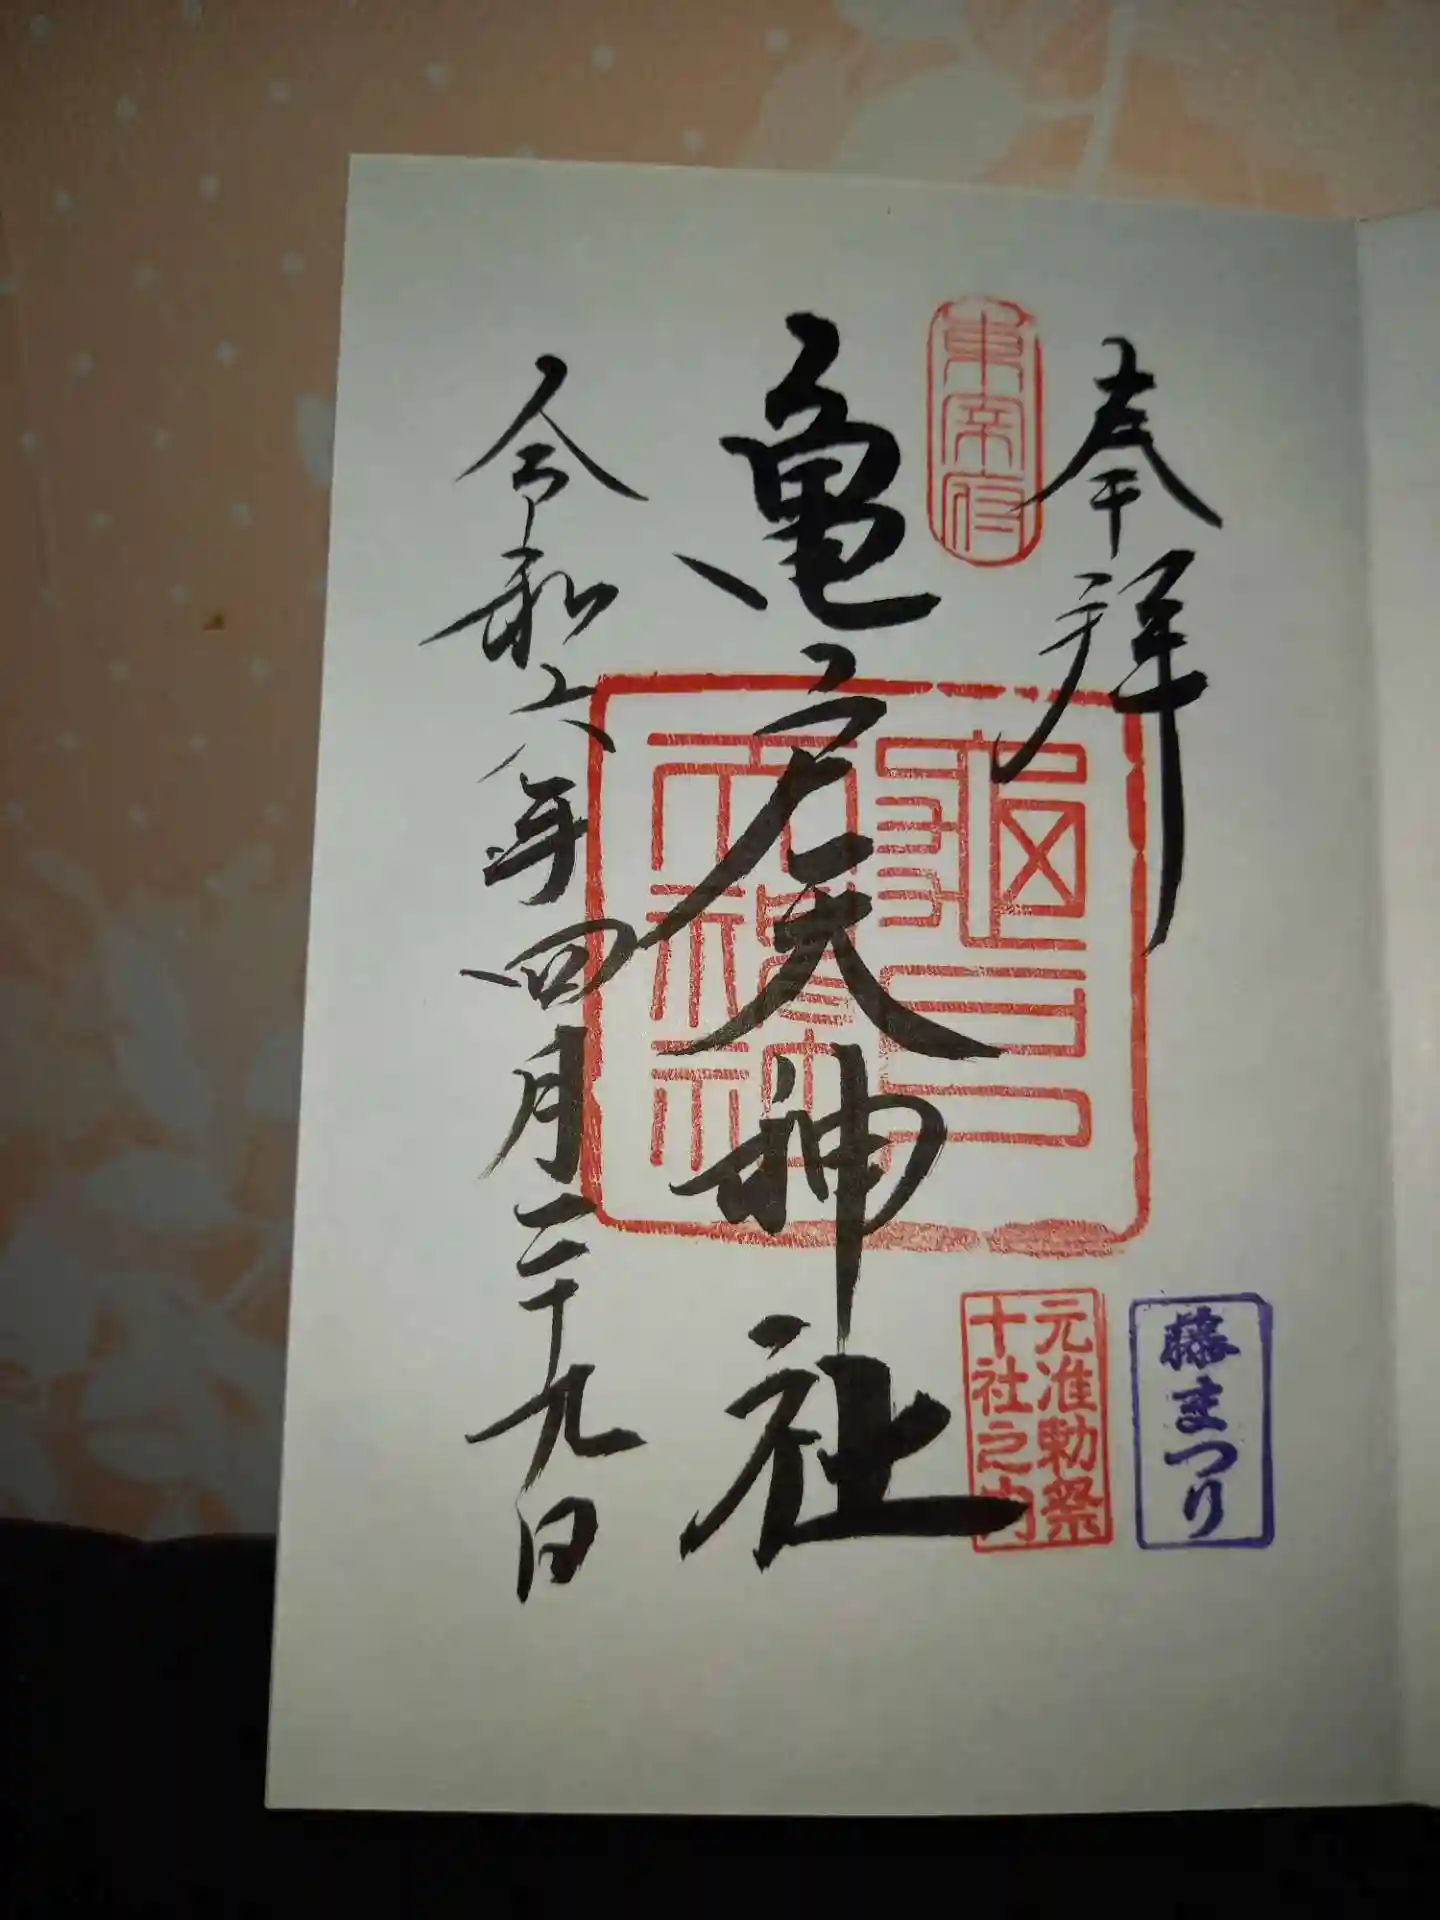 奉拝
東宰府
亀戸天神社
亀戸天神社
令和六年四月二十九日
元准勅祭
十社之内
藤まつり